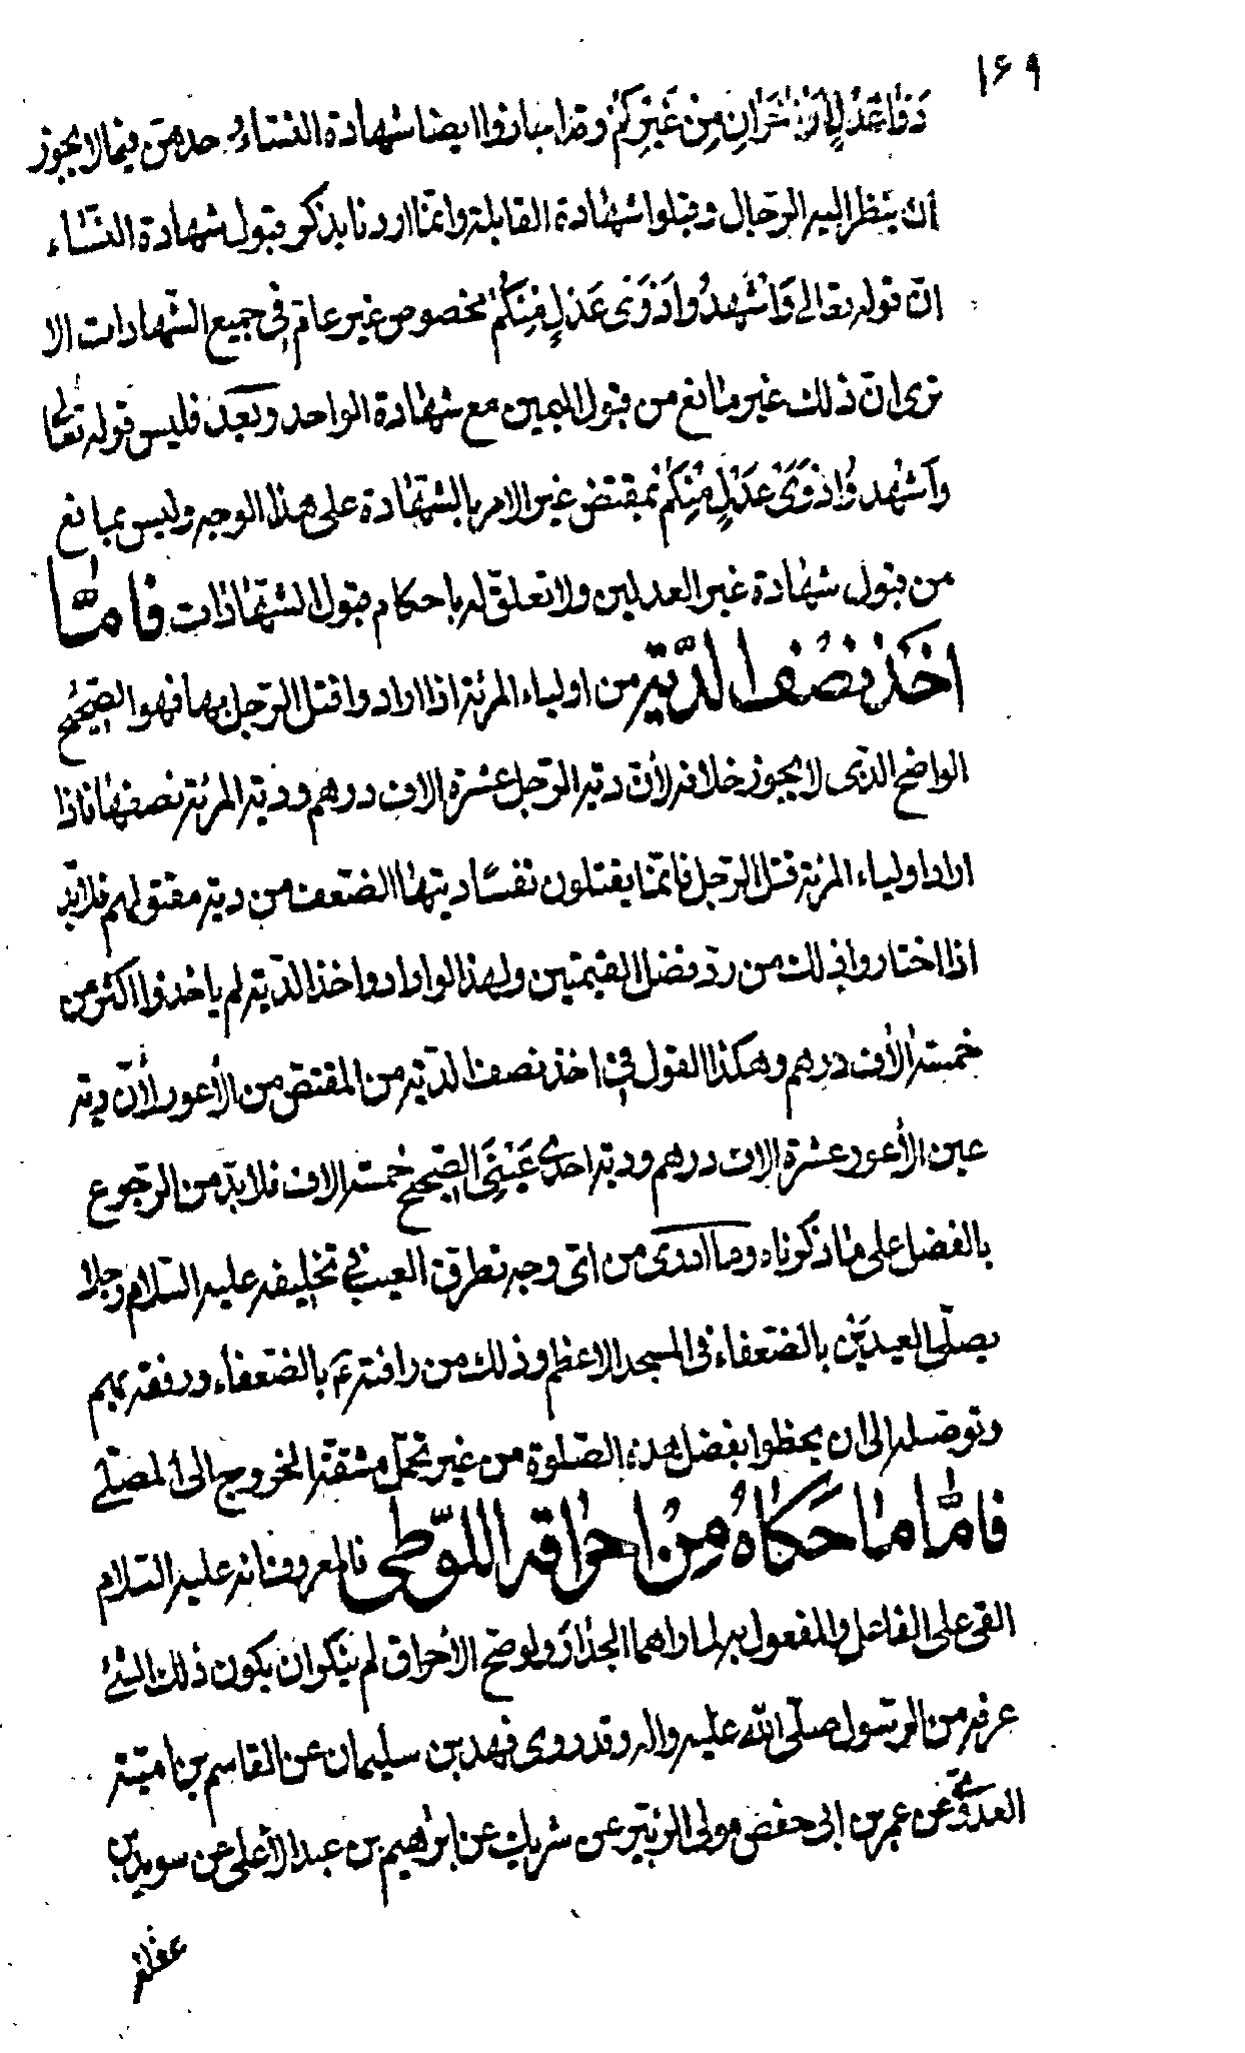 ۱۶۹
ذَوٰا عَدْلٍ اَوْ اٰخَرانِ مِنْ غَيْرِكُمْ وقد اجازوا ايضا شهادة النّساء وحدهنّ فيما لا يجوز
ان ينظر اليه الرّجال وقبلوا شهادة القابلة وانّما اردنا بذكر قبول شهادة النّساء
انّ قوله تعالى وَاَشْهِدُوا ذَوَىْ عَدْلٍ مِنْكُمْ مخصوص غير عامّ فى جميع الشّهادات الا
ترى انّ ذلك غير مانع من قبول اليمين مع شهادة الواحد وبعد فليس قوله تعالى
وَاَشْهِدُوا ذَوَىْ عَدْلٍ مِنْكُمْ بمقتض غير الامر بالشّهادة على هذا الوجه وليس بمانع
من قبول شهادة غير العدلين ولا تعلّق له باحكام قبول الشّهادات فامّا
اخذ نصف الدّية من اولياء المرئة اذا ارادوا قتل الرّجل بها فهو الصّحيح
الواضح الّذى لا يجوز خلافه لأنّ دية الرّجل عشرة الاف درهم ودية المرئة نصفها فاذا
اراد اولياء المرئة قتل الرّجل فانّما يقتلون نفسًا ديتها الضّعف من دية مقتولهم فلا بدّ
اذا اختاروا ذلك من ردّ فضل القيمتين ولهذا لو ارادوا اخذ الدّية لم ياخذوا اكثر من
خمسة الاف درهم وهكذا القول فى اخذ نصف الدّية من المقتصّ من الأعور لأنّ دية
عين الأعور عشرة الاف درهم ودية احدى عَيْنَىِ الصّحيح خمسة الاف فلا بدّ من الرّجوع
بالفضل على ما ذكرناه وما ادرى من اىّ وجه تطرق العيب فى تخليفه عليه السّلام رجلا
يصلّى العيدَيْن بالضّعفاء فى المسجد الاعظم وذلك من رافته عَ بالضّعفاء ورفقه بهم
وتوصّله الى ان يحظوا بفضل هذه الصّلوة من غير تحمّل مشقّة الخروج الى المصلّى
فامّا ما حَكاهُ مِنْ احراقه اللّوطى فالمعروف انه عليه السّلام
القى على الفاعل والمفعول به لما راهما الجدار ولو صح الأحراق لم ينكر ان يكون ذلك الشئ
عرفه من الرّسول صلّى الله عليه واله وقد روى فهد بن سليمان عن القاسم بن اميّة
العدوى عن عمر بن ابى حفص مولى الزّبير عن شريك عن ابرٰهيم بن عبد الأعلى عن سويد بن
غفلة